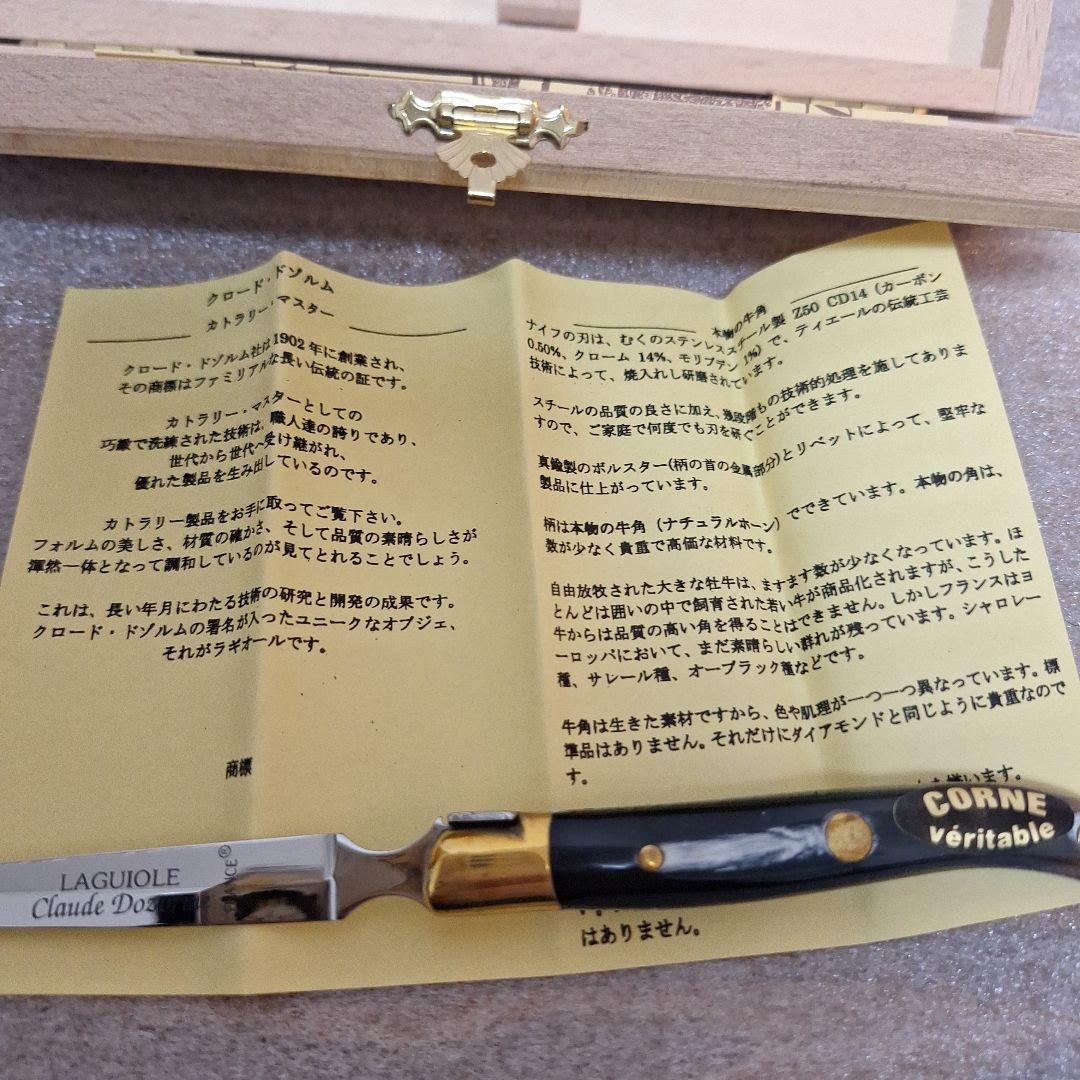 クロード・ドゾルム
カトラリー・マスター
クロード・ドゾルム社は1902年に創業され、
その商標はファミリアルな長い伝統の証です。
カトラリー・マスターとしての
巧緻で洗練された技術は、職人達の誇りであり、
世代から世代へ受け継がれ、
優れた製品を生み出しているのです。
カトラリー製品をお手に取ってご覧下さい。
フォルムの美しさ、材質の確かさ、そして品質の素晴らしさが
渾然一体となって調和しているのが見てとれることでしょう。
これは、長い年月にわたる技術の研究と開発の成果です。
クロード・ドゾルムの署名が入ったユニークなオブジェ、
それがラギオールです。
商標
本物の牛角
ナイフの刃は、むくのステンレススチール製 Z50 CD14 (カーボン
0.50%、クローム 14%、モリブデン 1%) で、ティエールの伝統工芸
技術によって、焼入れし研磨されています。
スチールの品質の良さに加え、幾段階もの技術的処理を施してありま
すので、ご家庭で何度でも刃を研ぐことができます。
真鍮製のボルスター(柄の首の金属部分)とリベットによって、堅牢な
製品に仕上がっています。
柄は本物の牛角 (ナチュラルホーン) でできています。本物の角は、
数が少なく貴重で高価な材料です。
自由放牧された大きな牡牛は、ますます数が少なくなっています。ほ
とんどは囲いの中で飼育された若い牛が商品化されますが、こうした
牛からは品質の高い角を得ることはできません。しかしフランスはヨ
ーロッパにおいて、まだ素晴らしい群れが残っています。シャロレー
種、サレール種、オーブラック種などです。
牛角は生きた素材ですから、色や肌理が一つ一つ異なっています。標
準品はありません。それだけにダイアモンドと同じように貴重なので
す。
嫌います。
はありません。
CORNE
véritable
LAGUIOLE
Claude Dozorme
FRANCE®